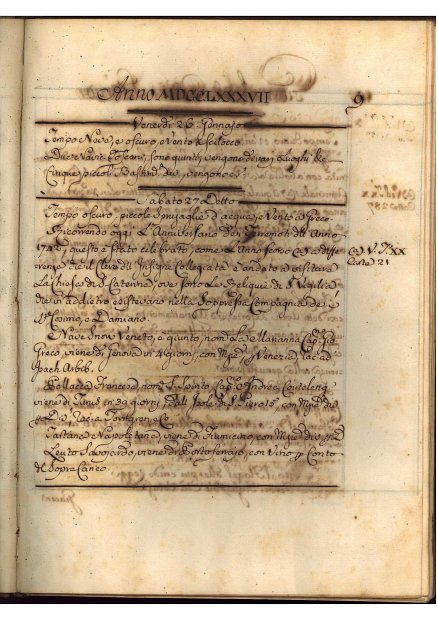 Anno MDCCLXXXVII
9
Venerdi 26 Gennajo
Tempo e Neve, e oscuro, e Vento a Scilocco
Due Navi Toscani, sono quinti, vengono di varj Luoghi. Le
Cinque, piccoli Bastim. di vengono
Sabato 27 Detto
Tempo oscuro, piccole spruzzaglie d'acqua, e Vento a Greco
Ricorrendo oggi l'Anniversario de' Tremoti dell Anno
1742, questo è stato celebrato, come l'Anno scorso con la diffe-
renza che il Clero dell'Insigne Collegiata è andato a visitare
la Chiesa di S. Caterina, ove sono le Reliquie di S. Vigilia
che in addietro esistevano nella Soppressa Compagnia de'
SS. Cosimo, e Damiano.
Nave Veneto, è quinto, nom. La Marianna Cap. Gio
Greco, viene di Genova in 14 giorni, con Mj. p. Venezia, rac. ad
Isach Arbib.
Pollacca Francese nom. S. Spirito, Cap. Andrea Coutelenq
viene di Tunis in 39 giorni, e dall'Isole di S. Piero 15, con Mj. div.
p. D. rac. a Tonigren, e C.
Tartane Napoletane, viene di Fiumicino, con Mj. div. p. D.
Leuto Savojardo, viene di Porto ferrajo, con Vino p. Conto
del Sopra Carico.
V. XX
Carta 21